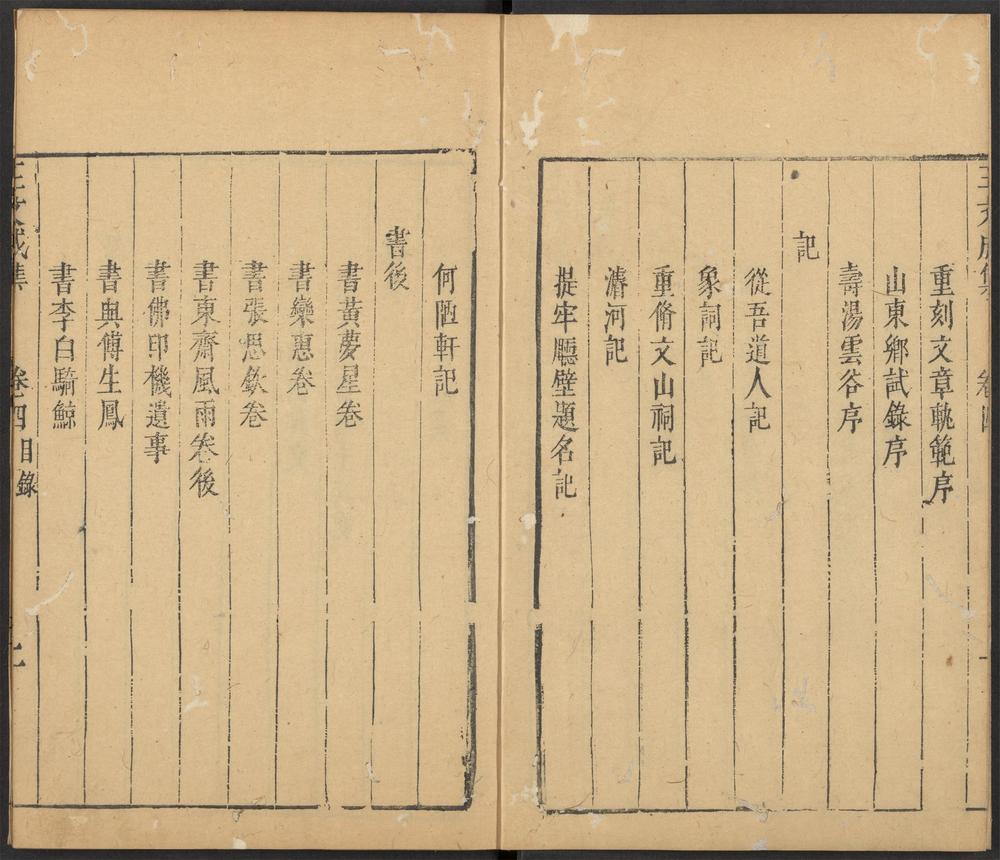 重刻文章軌範序
山東鄉試錄序
壽湯雲谷序
記
從吾道人記
象祠記
重脩文山祠記
濬河記
提牢廳壁題名記
何陋軒記
書後
書黃夢星卷
書欒惠卷
書張思欽卷
書東齋風雨卷後
書佛印機遺事
書與傅生鳳
書李白騎鯨
卷四目錄